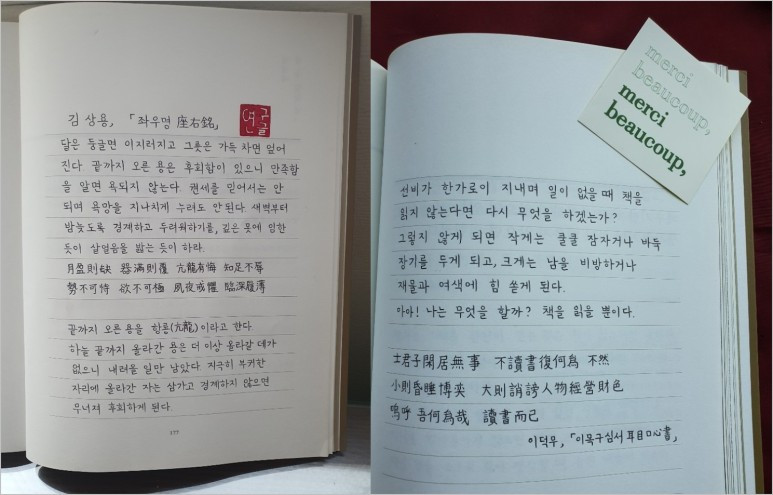 김상용, 「좌우명 座右銘」
연글
달은 둥글면 이지러지고 그릇은 가득 차면 엎어
진다. 끝까지 오른 용은 후회함이 있으니 만족함
을 알면 욕되지 않는다. 권세를 믿어서는 안
되며 욕망을 지나치게 누려도 안된다. 새벽부터
밤늦도록 경계하고 두려워하기를, 깊은 못에 임한
듯이 살얼음을 밟는 듯이 하라.
月盈則缺 器滿則覆 亢龍有悔 知足不辱
勢不可恃 欲不可極 夙夜戒懼 臨深履薄
끝까지 오른 용을 항룡(亢龍)이라고 한다
하늘 끝까지 올라간 용은 더 이상 올라갈 데가
없으니 내려올 일만 남았다. 지극히 부귀한
자리에 올라간 자는 삼가고 경계하지 않으면
무너져 후회하게 된다.
177
merci
beaucoup,
merci
beaucoup,
선비가 한가로이 지내며 일이 없을 때 책을
읽지 않는다면 다시 무엇을 하겠는가?
그렇지 않게 되면 작게는 쿨쿨 잠자거나 바둑
장기를 두게 되고, 크게는 남을 비방하거나
재물과 여색에 힘 쏟게 된다.
아아! 나는 무엇을 할까? 책을 읽을 뿐이다.
士君子閑居無事 不讀書復何為 不然
小則昏睡博奕 大則誚謗人物經營財色
嗚呼 吾何為哉 讀書而已
이덕무, 「이목구심서 耳目口心書」